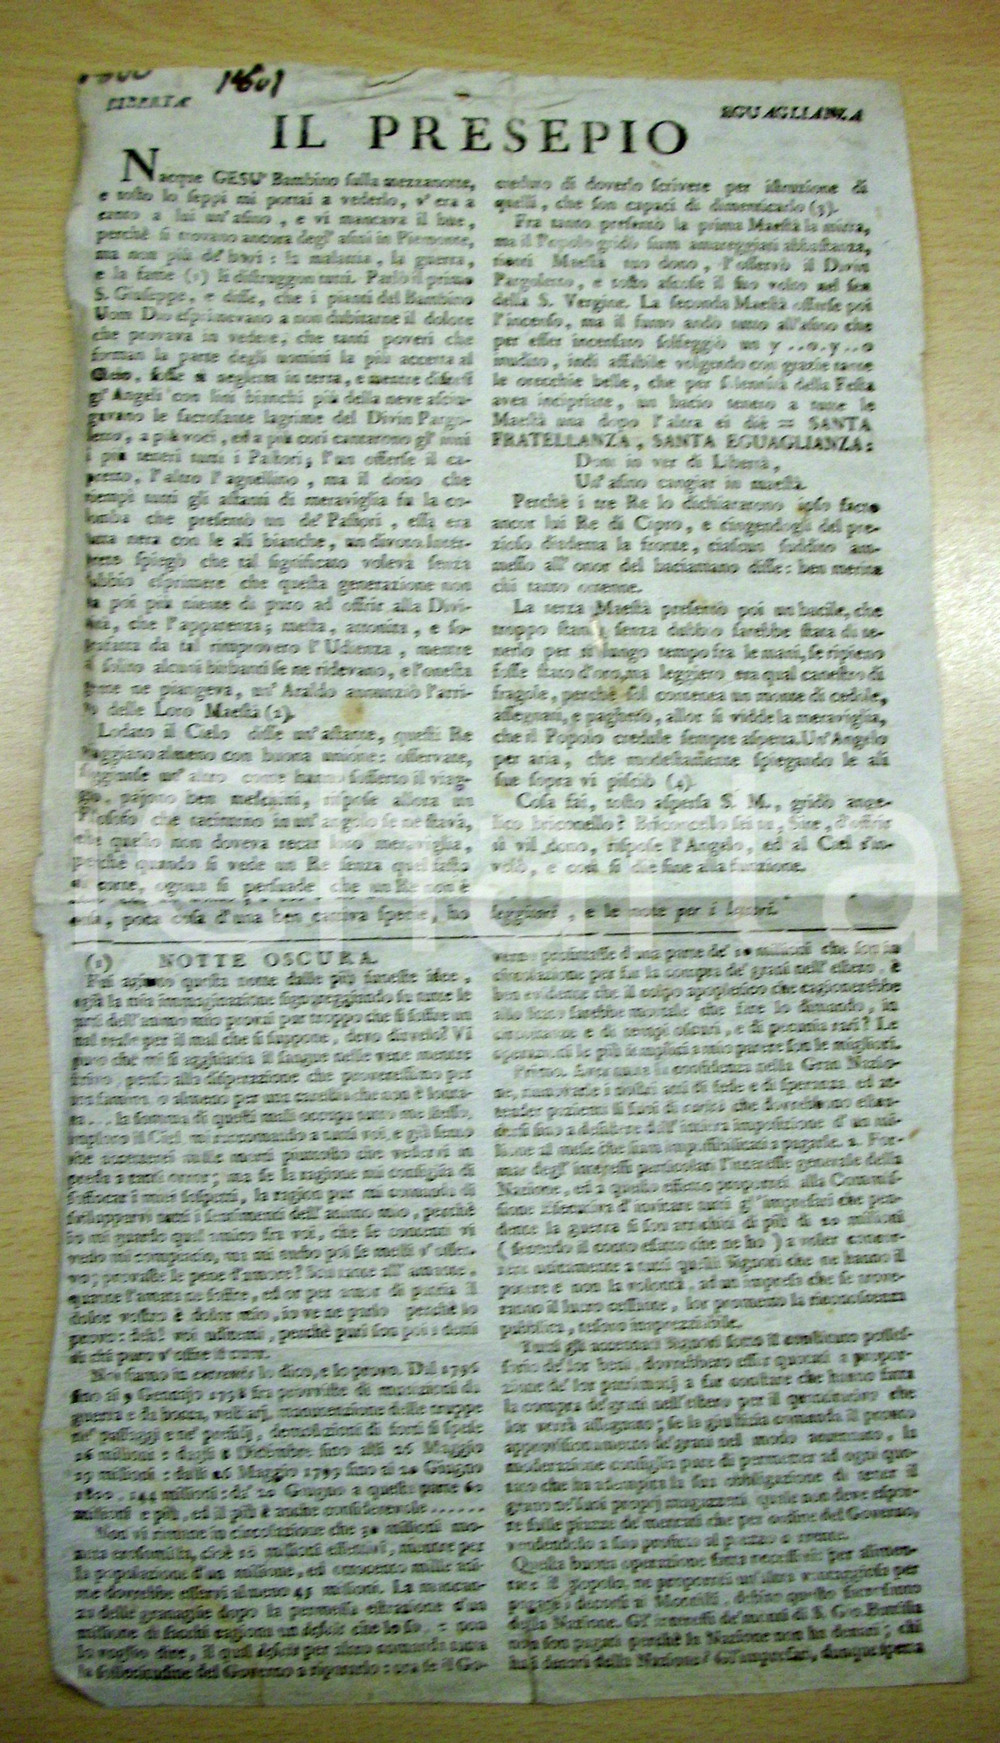 1801
LIBERTÀ
EGUAGLIANZA
IL PRESEPIO
Nacque GESU' Bambino sulla mezzanotte,
e tosto lo seppi mi portai a vederlo, v' era a
canto a lui un' asino, e vi mancava il bue,
perchè si trovano ancora degl' asini in Piemonte,
ma non più de' bovi: la malattia, la guerra,
e la fame (1) li distruggon tutti. Parlò il primo
S. Giuseppe, e disse, che i pianti del Bambino
Uom Dio esprimevano a non dubitarne il dolore
che provava in vedere, che tanti poveri che
forman la parte degli uomini la più accetta al
Cielo, fosse sì negletta in terra, e mentre
gl' Angeli con lini bianchi più della neve asciu-
gavano le sacrosante lagrime del Divin Pargo-
letto, a più voci, ed a più cori cantarono gl' inni
i più teneri tutti i Pastori; l'un offerse il ca-
pretto, l'altro l'agnellino, ma il dono che
riempì tutti gli astanti di meraviglia fu la co-
lomba che presentò un de' Pastori, essa era
tutta nera con le ali bianche, un divoto Inter-
prete spiegò che tal significato voleva senza
dubbio esprimere che questa generazione non
ha poi più niente di puro ad offrir alla Divi-
nità, che l'apparenza; mesta, attonita, e so-
praffatta da tal rimprovero l' Udienza, mentre
il solito alcuni birbanti se ne ridevano, e l'onesta
gente ne piangeva, un' Araldo annunziò l'arri-
vo delle Loro Maestà (2).
Lodato il Cielo disse un' astante, questi Re
viaggiano almeno con buona unione: osservate,
soggiunse un' altro come hanno sofferto il viag-
gio, pajono ben meschini, rispose allora un
Filosofo che taciturno in un' angolo se ne stava,
che questo non doveva recar loro meraviglia,
perchè quando si vede un Re senza quel fasto
di corte, ognun si persuade che un Re non è
cosa, poca cosa d'una ben cattiva specie, ho
creduto di doverlo scrivere per istruzione di
quelli, che son capaci di dimenticarlo (3).
Fra tanto presentò la prima Maestà la mirra,
ma il Popolo gridò siam amareggiati abbastanza,
tienti Maestà tuo dono, l'osservò il Divin
Pargoletto, e tosto ascose il suo volto nel sen
della S. Vergine. La seconda Maestà offerse poi
l'incenso, ma il fumo andò tutto all'asino che
per esser incensato solfeggiò un y..o.y..o
inudito, indi affabile volgendo con grazie tante
le orecchie belle, che per solennità della Festa
avea incipriate, un bacio tenero a tutte le
Maestà una dopo l'altra ei diè = SANTA
FRATELLANZA, SANTA EGUAGLIANZA:
Dono in ver di Libertà,
Un' asino cangiar in maestà.
Perchè i tre Re lo dichiararono ipso facto
ancor lui Re di Cipro, e cingendogli del pre-
zioso diadema la fronte, ciascun suddito am-
messo all' onor del baciamano disse: ben merita
chi tanto ottenne.
La terza Maestà presentò poi un bacile, che
troppo stanca senza dubbio sarebbe stata di te-
nerlo per sì lungo tempo fra le mani, se ripieno
fosse stato d'oro, ma leggiero era qual canestro di
fragole, perchè sol contenea un monte di cedole,
assegnati, e pagherò, allor si vidde la meraviglia,
che il Popolo credule sempre aspetta. Un' Angelo
per aria, che modestamente spiegando le ali
sue sopra vi pisciò (4).
Cosa fai, tosto aspersa S. M., gridò ange-
lico briconello? Briconcello sei tu, Sire, d'offrir
sì vil dono, rispose l'Angelo, ed al Ciel s'in-
volò, e così si diè fine alla funzione.
leggitori, e le note per i
(1) NOTTE OSCURA
Fui agitato questa notte dalle più funeste idee,
già la mia immaginazione signoreggiando su tutte le
parti dell' animo mio provai pur troppo che si soffre un
mal reale per il mal che si suppone, devo dirvelo? Vi
giuro che mi si agghiaccia il sangue nelle vene mentre
scrivo, penso alla disperazione che proveressimo per
una famina, o almeno per una carestia che non è lonta-
na.... la somma di questi mali occupa tutto me stesso,
imploro il Ciel, mi raccomando a tutti voi, e già sento
che accetterei mille morti piuttosto che vedervi in
preda a tanti orrori; ma se la ragione mi consiglia di
soffocar i miei sospetti, la ragion pur mi comanda di
svilupparvi tutti i sentimenti dell' animo mio, perchè
io mi guardo qual amico fra voi, che se contenti vi
vedo mi compiaccio, ma mi turbo poi se mesti v' osser-
vo; provaste le pene d'amore? Son tante all' amante,
quante l'amata ne soffre, ed or per amor di patria il
dolor vostro è dolor mio, io ve ne parlo perchè lo
provo: deh! voi uditemi, perchè puri son poi i doni
di chi puro v' offre il cuor.
Noi siamo in estremis lo dico, e lo provo. Dal 1796
fino ai 9 Gennajo 1798 fra provviste di munizioni da
guerra e da bocca, vestiarj, manutenzione delle truppe
ne' passaggi e ne' presidj, demolizioni di forti si spese
26 milioni: dagli 8 Dicembre fino alli 26 Maggio
29 milioni: dalli 26 Maggio 1799 fino ai 20 Giugno
1800, 144 milioni: de' 20 Giugno a questa parte 60
milioni e più, ed il più è anche considerevole......
Non vi rimane in circolazione che 30 milioni mo-
la popolazione d'un milione, ed ottocento mille ani-
me dovrebbe esservi almeno 45 milioni. La mancan-
za delle granaglie dopo la permessa estrazione d'un
milione di sacchi cagiona un deficit che lo so, e non
lo voglio dire, il qual deficit per altro comanda tutta
la sollecitudine del Governo a ripararlo: ora se il Go-
verno profittasse d'una parte de' 30 milioni che son in
circolazione per far la compra de' grani nell' estero, è
ben evidente che il colpo apopletico che cagionerebbe
allo Stato sarebbe mortale che fare lo dimando, in
circostanze e di tempi oscuri, e di pecunia rari? Le
operazioni le più semplici a mio parere son le migliori.
Primo. Avere tutta la confidenza nella Gran Nazio-
ne, rinnovarle i nostri atti di fede e di speranza, ed at-
tender pazienti li suoi di carità che dovrebbono esten-
dersi fino a desistere dall' intiera imposizione d' un mi-
lione al mese che siam impossibilitati a pagarle. 2. For-
mar degl' interessi particolari l'interesse generale della
Nazione, ed a quello effetto proporrei alla Commis-
sione Esecutiva d'invitare tutti gl' impresarj che pen-
dente la guerra si son arrichiti di più di 20 milioni
(secondo il conto esatto che ne ho) a voler concor-
rere unitamente a tutti quelli Signori che ne hanno il
potere e non la volontà, ad un impresa che se trove-
ranno il lucro cessante, lor prometto la riconoscenza
pubblica, tesoro inapprezzibile.
Tutti gli accennati Signori sotto il continuo posses-
sorio de' lor beni, dovrebbero esser quotati a propor-
zione de' lor patrimonj a far constare che hanno fatta
la compra de' grani nell' estero per il quantitativo che
lor verrà assegnato; se la giustizia comanda il pronto
approvisionamento de' grani nel modo accennato, la
moderazione consiglia pure di permetter ad ogni quo-
tato che ha adempita la sua obbligazione di tener il
grano ne' suoi proprj magazzeni quale non deve espor-
re sulle piazze de' mercati che per ordine del Governo,
vendendolo a suo profitto al prezzo corrente.
Questa buona operazione fatta necessaria per alimen-
tare il popolo, ne proporrei un' altra vantaggiosa per
pagar i decorsi ai Montisti, debito questo sacrosanto
della Nazione. Gl' interessi de' monti di S. Gio. Battista
non son pagati perchè la Nazione non ha denari; chi
ha i denari della Nazione? Gl' impresarj, dunque spetta